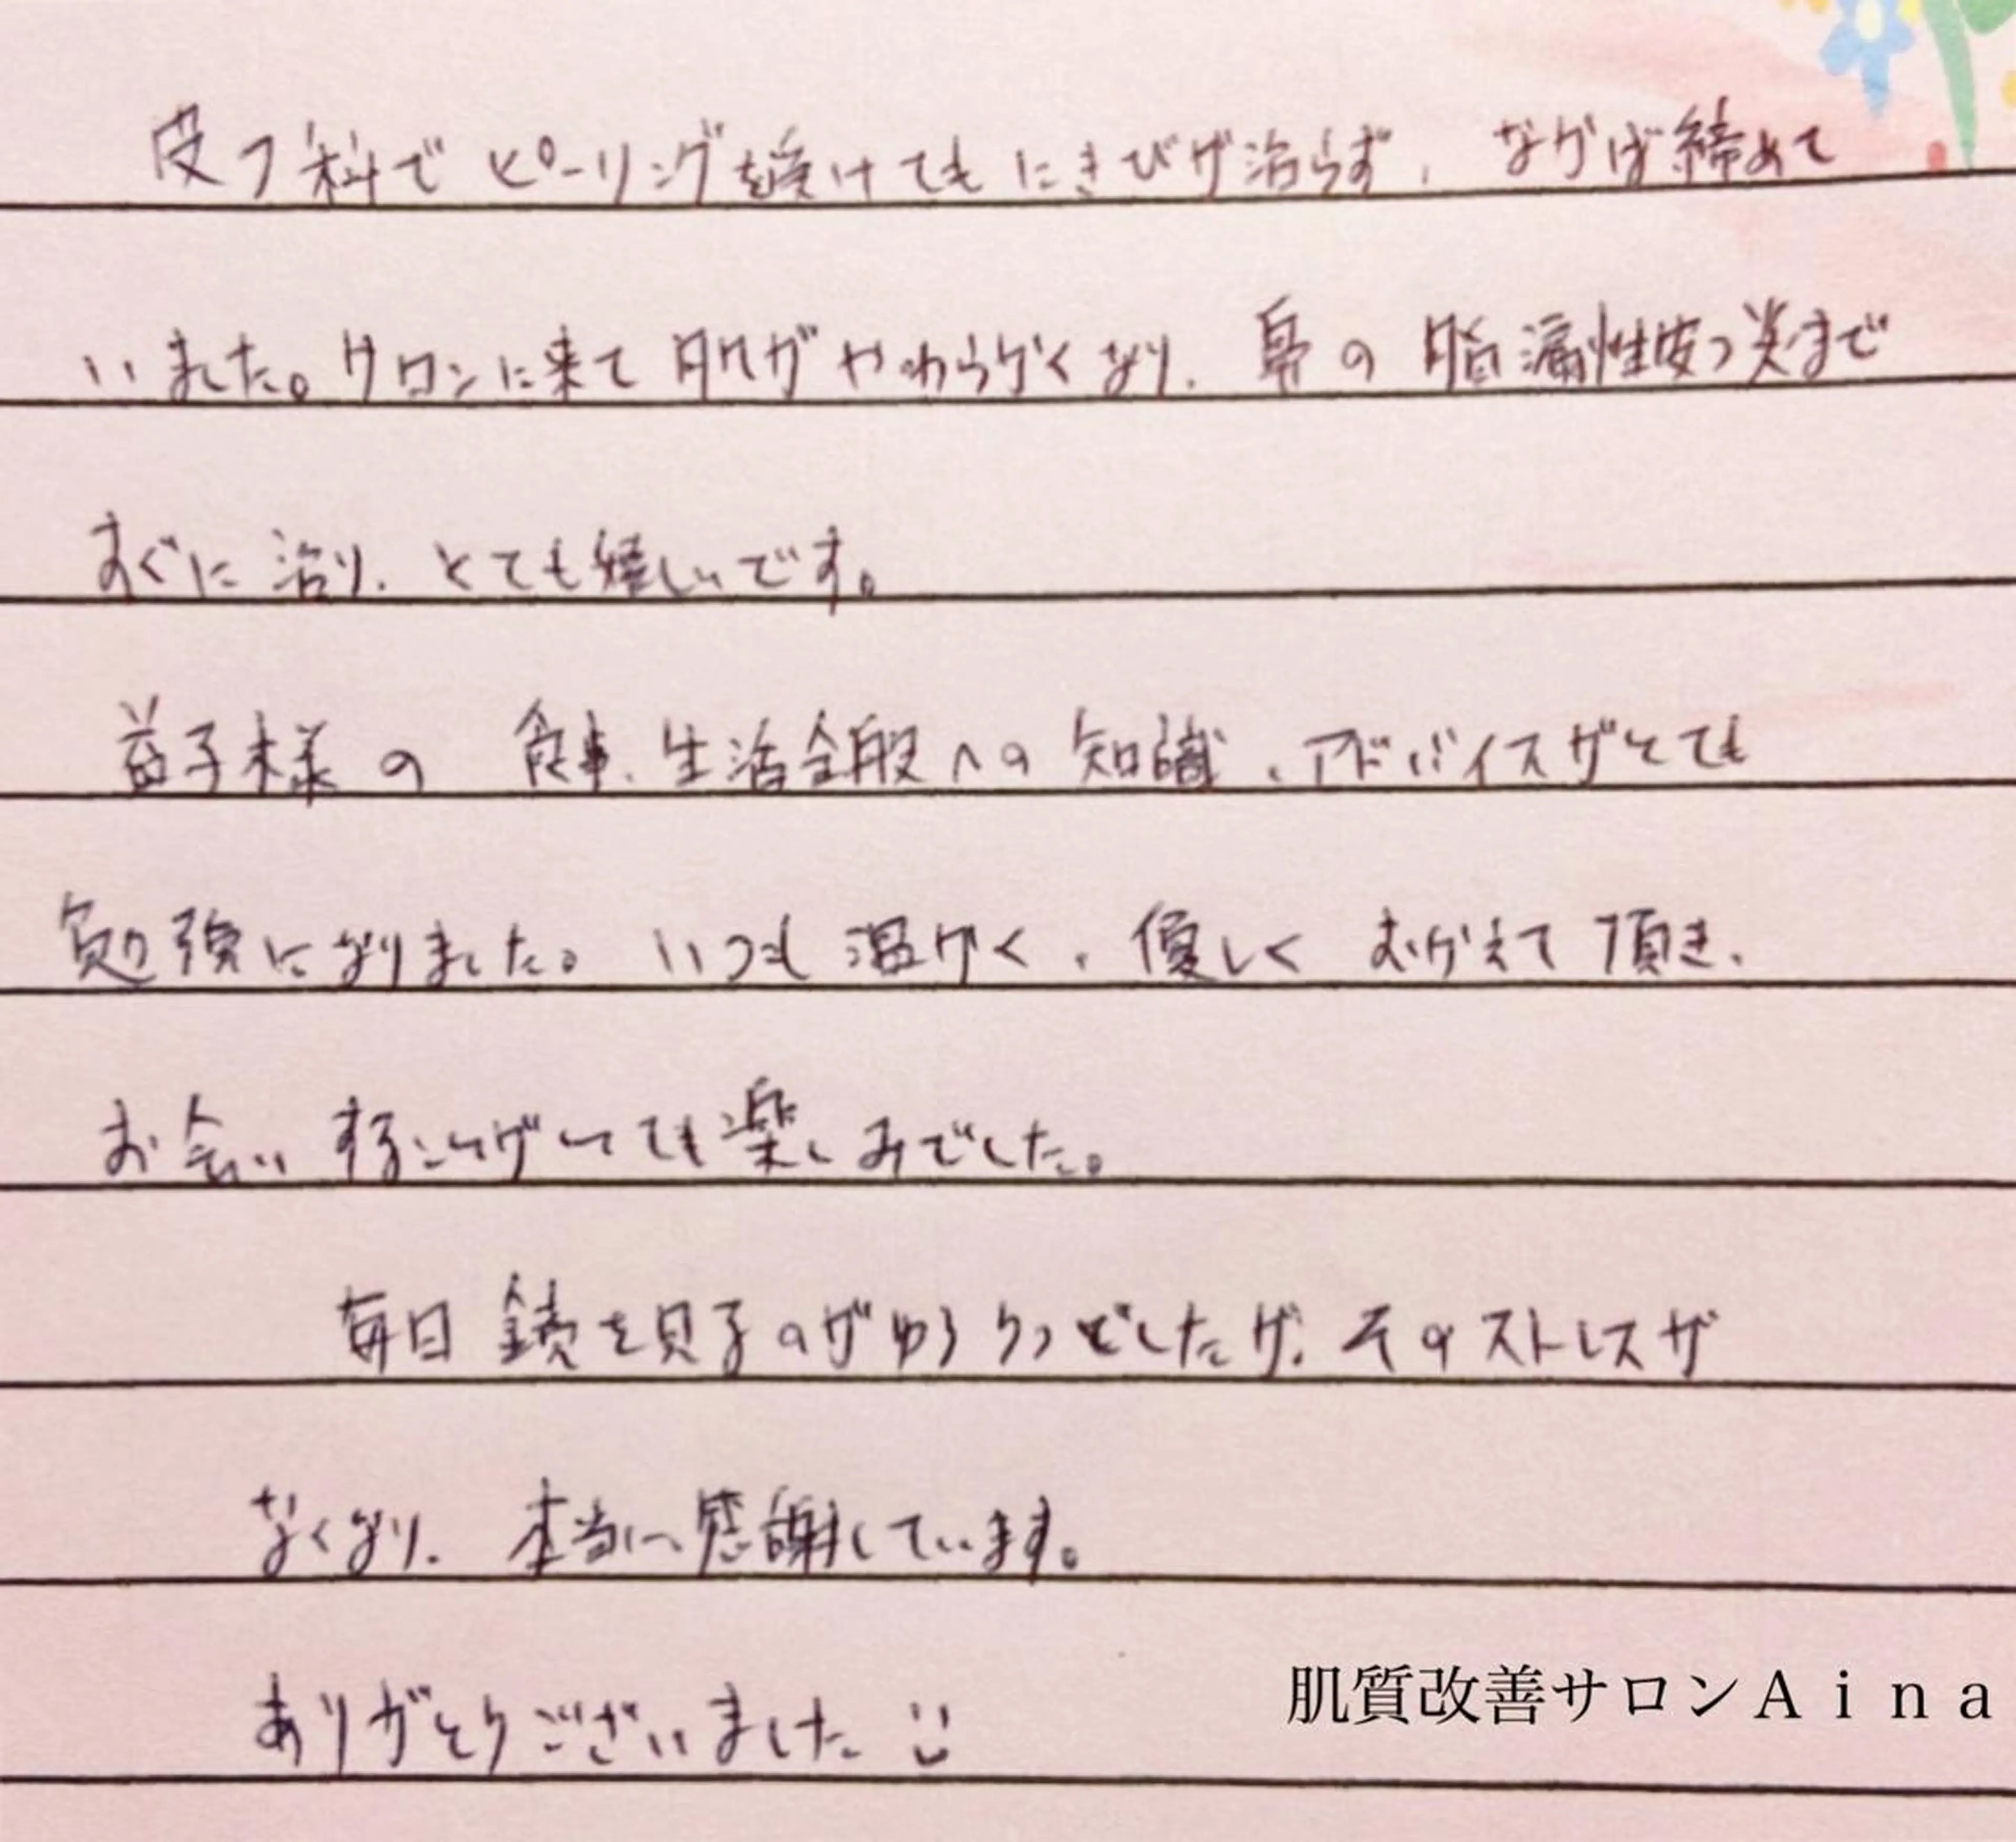 皮フ科でピーリングを受けてもにきびが治らず、なかば締めて
いました。サロンに来て肌がやわらかくなり、鼻の脂漏性皮フ炎まで
すぐに治り、とても嬉しいです。
益子様の食事、生活全般への知識、アドバイスがとても
勉強になりました。いつも温かく、優しくむかえて頂き、
お会いすることがとても楽しみでした。
毎日鏡を見るのがゆううつでしたが、そのストレスが
なくなり、本当に感謝しています。
ありがとうございました
肌質改善サロンAina